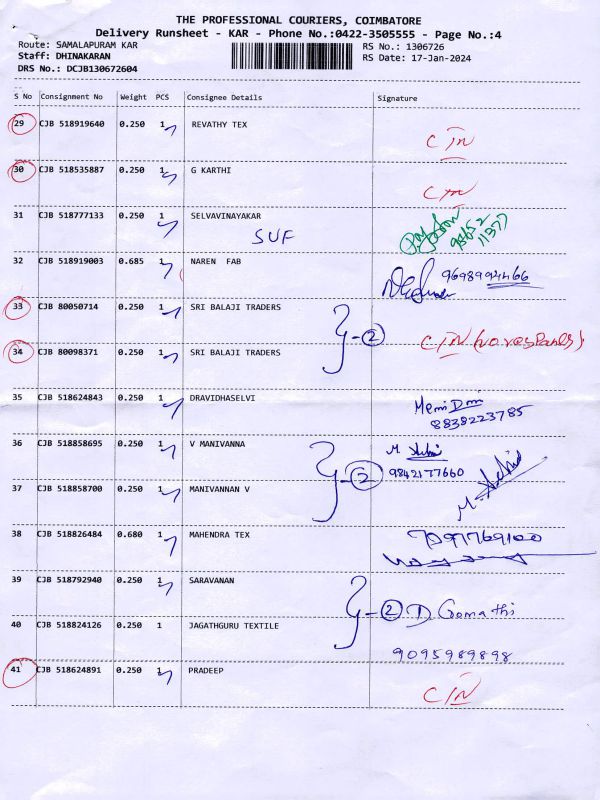 THE PROFESSIONAL COURIERS, COIMBATORE
Delivery Runsheet - KAR - Phone No.:0422-3505555 - Page No.:4
Route: SAMALAPURAM KAR RS No.: 1306726
Staff: DHINAKARAN RS Date: 17-Jan-2024
DRS No.: DCJB130672604
S No Consignment No Weight PCS Consignee Details Signature
29 CJB 518919640 0.250 1 REVATHY TEX
CIN
30 CJB 518535887 0.250 1 G KARTHI
CIN
31 CJB 518777133 0.250 1 SELVAVINAYAKAR
SUF
98652
11377
32 CJB 518919003 0.685 1 NAREN FAB
9698994466
33 CJB 80050714 0.250 1 SRI BALAJI TRADERS
2
CIN
34 CJB 80098371 0.250 1 SRI BALAJI TRADERS
35 CJB 518624843 0.250 1 DRAVIDHASELVI
8838223785
36 CJB 518858695 0.250 1 V MANIVANNA
M
2 9842177660
37 CJB 518858700 0.250 1 MANIVANNAN V
M.
38 CJB 518826484 0.680 1 MAHENDRA TEX
7097769100
39 CJB 518792940 0.250 1 SARAVANAN
2 D Gomathi
40 CJB 518824126 0.250 1 JAGATHGURU TEXTILE
9095989898
41 CJB 518624891 0.250 1 PRADEEP
CIN